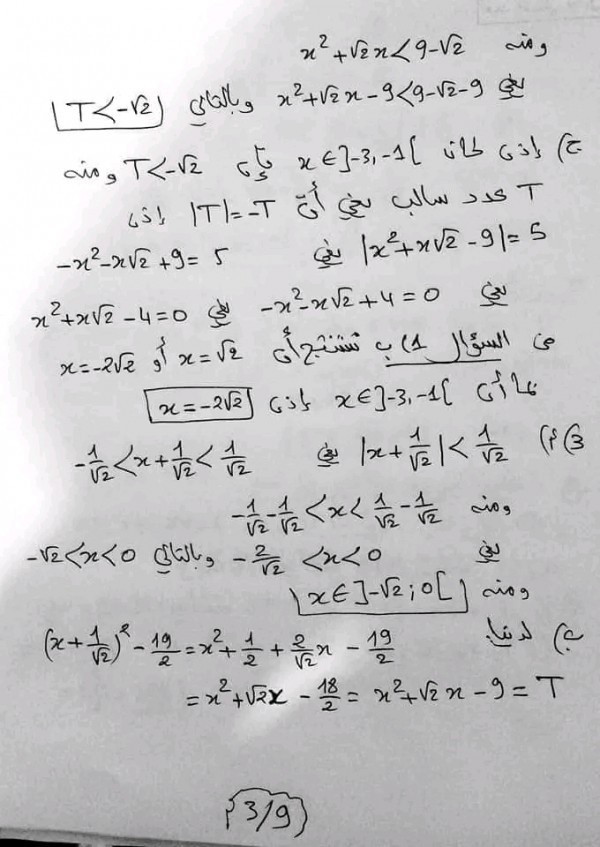 ومنه x²+√2x<9-√2
يعني x²+√2x-9<9-√2-9 وبالتالي T<-√2
ج) إذا كان x∈]-3,-1[ فإن T<-√2 ومنه
T عدد سالب يعني أنّ |T|=-T إذن
|x²+x√2-9|=5 يعني -x²-x√2+9=5
يعني -x²-x√2+4=0 يعني x²+x√2-4=0
من السؤال 1) ب نستنتج أن x=√2 أو x=-2√2
بما أن x∈]-3,-1[ إذن x=-2√2
3) أ) |x+1/√2|<1/√2 يعني -1/√2<x+1/√2<1/√2
ومنه -1/√2-1/√2<x<1/√2-1/√2
يعني -2/√2<x<0 وبالتالي -√2<x<0
ومنه x∈]-√2;0[
لدينا (x+1/√2)²-19/2=x²+1/2+2/√2x-19/2
=x²+√2x-18/2=x²+√2x-9=T
3/9